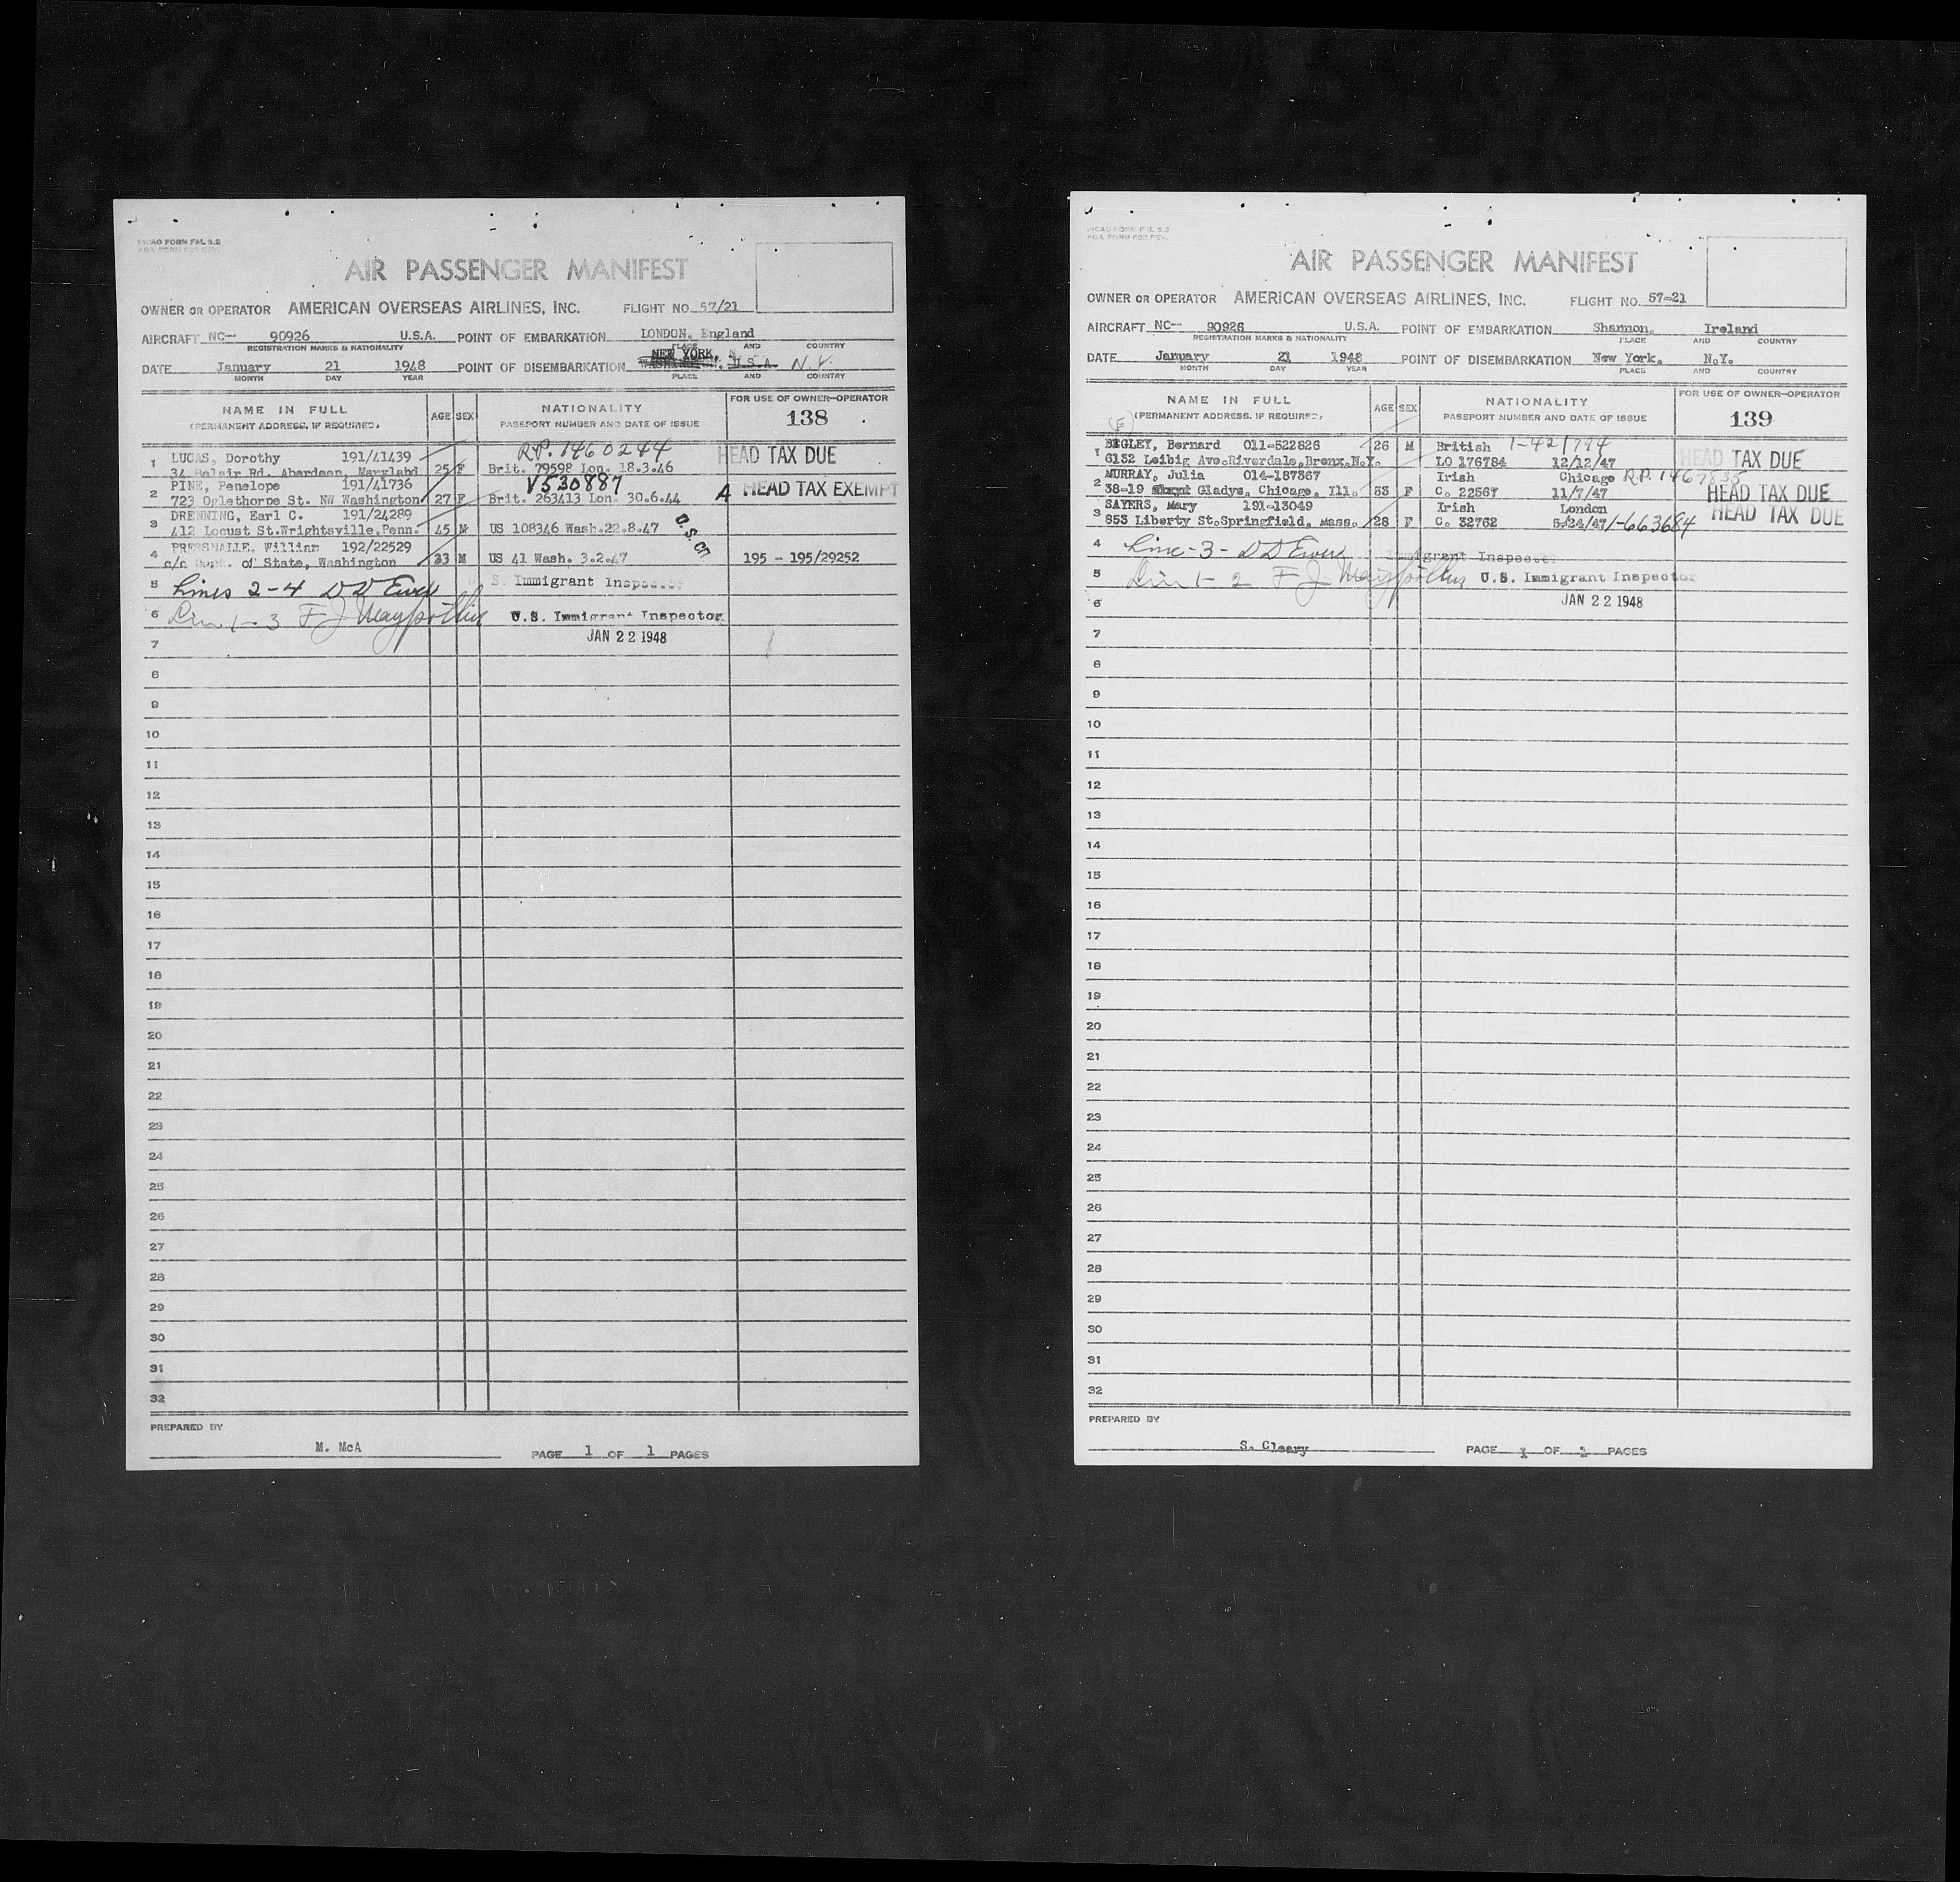 AIR PASSENGER MANIFEST
OWNER OR OPERATOR AMERICAN OVERSEAS AIRLINES, INC. FLIGHT NO. 57/21
AIRCRAFT NC— 90926 U.S.A. POINT OF EMBARKATION LONDON, England
REGISTRATION MARKS & NATIONALITY PLACE AND COUNTRY
NEW YORK,
DATE January 21 1948 POINT OF DISEMBARKATION U.S.A. N.Y.
MONTH DAY YEAR PLACE AND COUNTRY
NAME IN FULL AGE SEX NATIONALITY FOR USE OF OWNER-OPERATOR
(PERMANENT ADDRESS, IF REQUIRED) PASSPORT NUMBER AND DATE OF ISSUE 138
R.P. 1460244
LUCAS, Dorothy 191/41439 HEAD TAX DUE
1 34 Balair Rd. Aberdeen, Maryland 25 F Brit. 79598 Lon. 18.3.46
PINE, Penelope 191/41736 V530887
2 723 Oglethorpe St. NW Washington 27 F Brit. 263413 Lon. 30.6.44 A HEAD TAX EXEMPT
DRENNING, Earl C. 191/24289
3 412 Locust St.Wrightsville,Penn. 45 M US 108346 Wash.22.8.47
PRESSWALLE, William 192/22529
4 c/o Dept. of State, Washington 33 M US 41 Wash. 3.2.47 195 - 195/29252
5 Lines 2-4 D D Ewer S. Immigrant Inspector
6 Lin 1-3 F J U.S. Immigrant Inspector
7 JAN 22 1948
8
9
10
11
12
13
14
15
16
17
18
19
20
21
22
23
24
25
26
27
28
29
30
31
32
PREPARED BY
M. McA PAGE 1 OF 1 PAGES
AIR PASSENGER MANIFEST
OWNER OR OPERATOR AMERICAN OVERSEAS AIRLINES, INC. FLIGHT NO. 57-21
AIRCRAFT NC— 90926 U.S.A. POINT OF EMBARKATION Shannon, Ireland
REGISTRATION MARKS & NATIONALITY PLACE AND COUNTRY
DATE January 21 1948 POINT OF DISEMBARKATION New York, N.Y.
MONTH DAY YEAR PLACE AND COUNTRY
NAME IN FULL AGE SEX NATIONALITY FOR USE OF OWNER-OPERATOR
(PERMANENT ADDRESS, IF REQUIRED) PASSPORT NUMBER AND DATE OF ISSUE 139
(E)
BEGLEY, Bernard 011-522826 26 M British 1-421794
1 6132 Leibig Ave.Riverdale,Bronx,N.Y. LO 176784 12/12/47 HEAD TAX DUE
MURRAY, Julia 014-187367 Irish Chicago R.P. 1467835
2 38-19 Gladys, Chicago, Ill. 53 F C. 22567 11/7/47 HEAD TAX DUE
SAYERS, Mary 191-13049 Irish London HEAD TAX DUE
3 853 Liberty St.Springfield, Mass. 28 F C. 32762 5/24/47 1-663684
4 Line-3- D D Ewer Immigrant Inspector
5 Lin 1-2 F J U.S. Immigrant Inspector
6 JAN 22 1948
7
8
9
10
11
12
13
14
15
16
17
18
19
20
21
22
23
24
25
26
27
28
29
30
31
32
PREPARED BY
S. Cleary PAGE 1 OF 1 PAGES